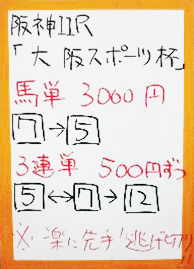 阪神11R
「大阪スポーツ杯」
馬単 3000円
7→5
3連単 500円ずつ
5↔7→12
※楽に先手!逃げ切り